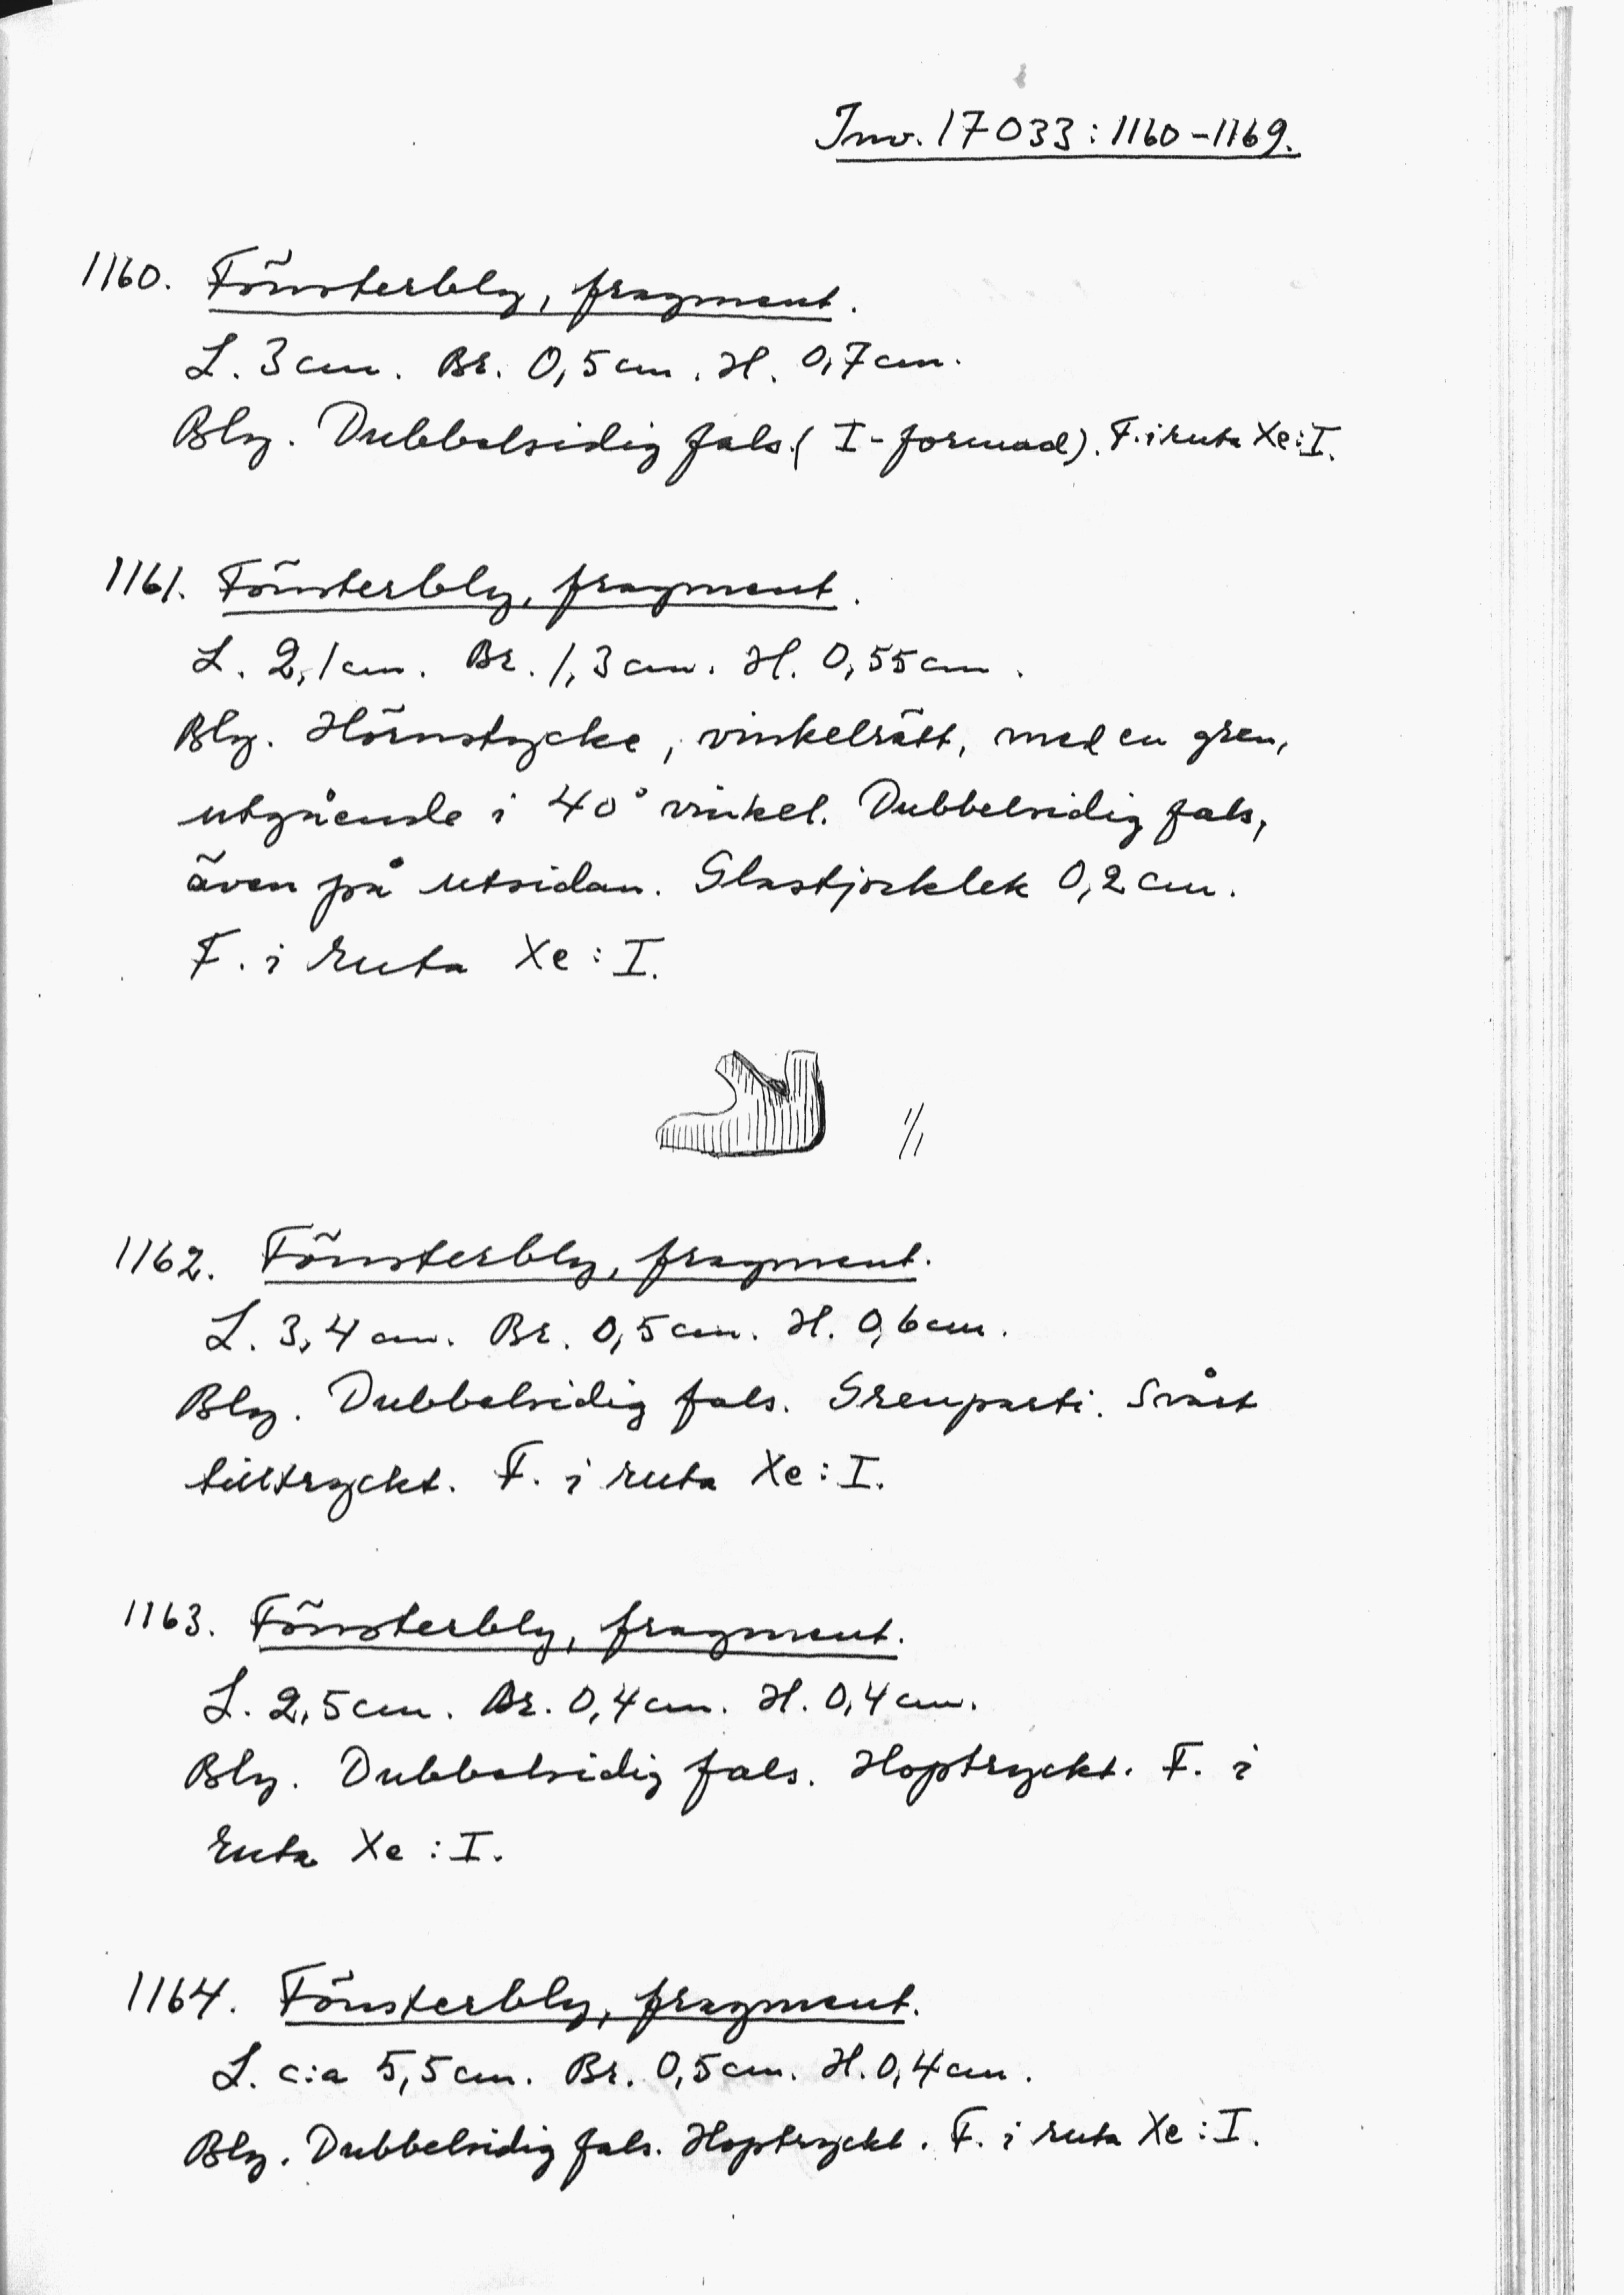 Inv. 17033:1160-1169.
1160. Fönsterbly, fragment.
L. 3 cm. Br. 0,5 cm. H. 0,7 cm.
Bly. Dubbelsidig fals. (I-formad). F. i ruta Xe:I.
1161. Fönsterbly, fragment.
L. 2,1 cm. Br. 1,3 cm. H. 0,55 cm.
Bly. Hörnstycke, vinkelrätt, med en gren,
utgående i 40° vinkel. Dubbelsidig fals,
även på utsidan. Glastjocklek 0,2 cm.
F. i ruta Xe:I.
1/1
1162. Fönsterbly, fragment.
L. 3,4 cm. Br. 0,5 cm. H. 0,6 cm.
Bly. Dubbelsidig fals. Grenparti. Svårt
tilltryckt. F. i ruta Xe:I.
1163. Fönsterbly, fragment.
L. 2,5 cm. Br. 0,4 cm. H. 0,4 cm.
Bly. Dubbelsidig fals. Hoptryckt. F. i
ruta Xe:I.
1164. Fönsterbly, fragment.
L. c:a 5,5 cm. Br. 0,5 cm. H. 0,4 cm.
Bly. Dubbelsidig fals. Hoptryckt. F. i ruta Xe:I.